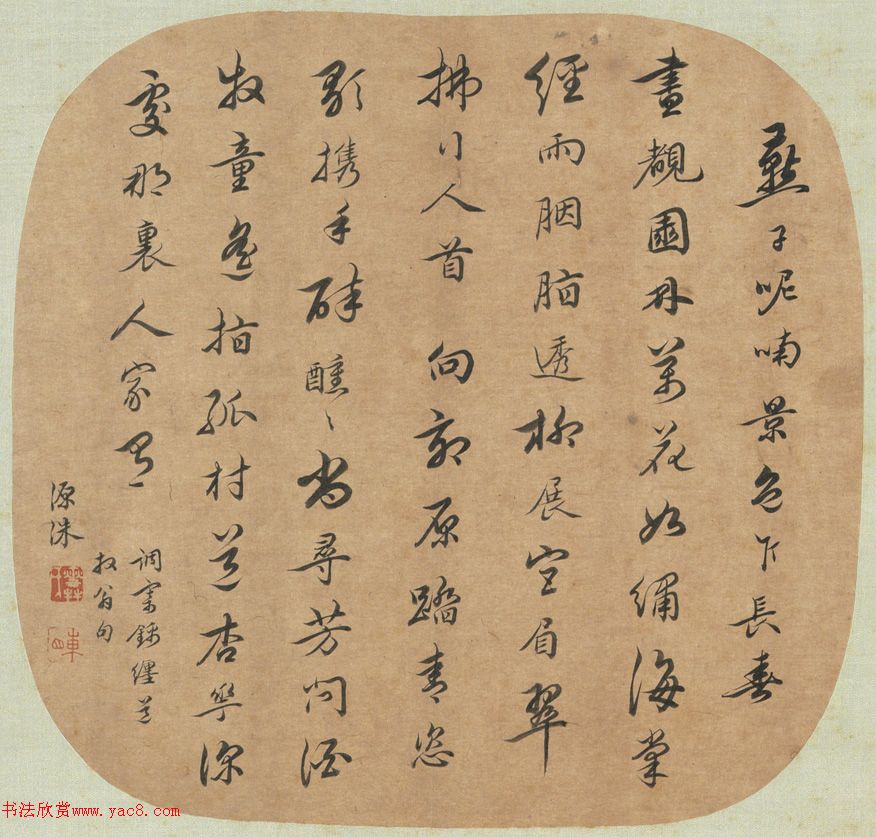 燕子呢喃景色乍長春
晝覩園林萬花如繡海棠
經雨胭脂透柳展宮眉翠
拂行人首向郊原蹋青恣
歌携手醉醺〻尚尋芳問酒
牧童遙指孤村道杏花深
處那裏人家有
調寄錦纏道
放翁句
源洙
书法欣赏www.yac8.com